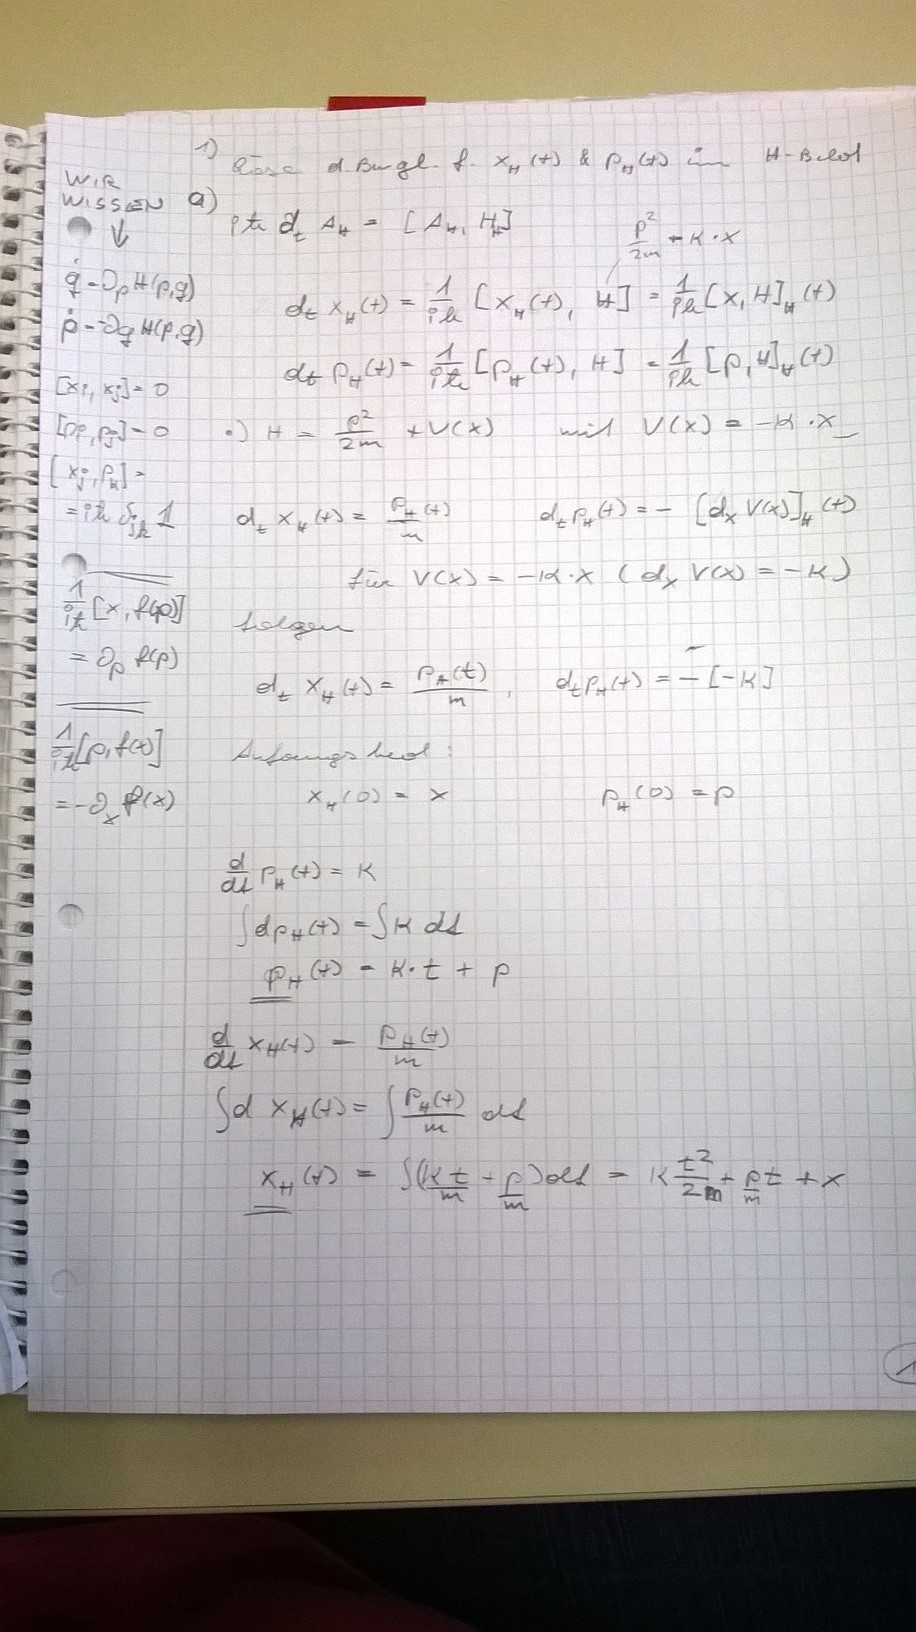 1) Löse d. Bwgl. f. x_H(t) & p_H(t) im H-Bild
WIR
WISSEN
↓
q̇ = ∂_p H(p,q)
ṗ = -∂_q H(p,q)
[x_i, x_j] = 0
[p_i, p_j] = 0
[x_j, p_k] =
= iħ δ_jk 1
1/iħ [x, f(p)]
= ∂_p f(p)
1/iħ [p, f(x)]
= -∂_x f(x)
a) iħ d_t A_H = [A_H, H_H]
p²/2m - K·x
d_t x_H(t) = 1/iħ [x_H(t), H] = 1/iħ [x, H]_H(t)
d_t p_H(t) = 1/iħ [p_H(t), H] = 1/iħ [p, H]_H(t)
•) H = p²/2m + V(x) mit V(x) = -K·x
d_t x_H(t) = p_H(t)/m d_t p_H(t) = - [d_x V(x)]_H(t)
für V(x) = -K·x (d_x V(x) = -K)
folgen
d_t x_H(t) = p_H(t)/m , d_t p_H(t) = -[-K]
Anfangsbed:
x_H(0) = x p_H(0) = p
d/dt p_H(t) = K
∫dp_H(t) = ∫K dt
p_H(t) = K·t + p
d/dt x_H(t) = p_H(t)/m
∫d x_H(t) = ∫ p_H(t)/m dt
x_H(t) = ∫(K t/m + p/m)dt = K t²/2m + p/m t + x
1